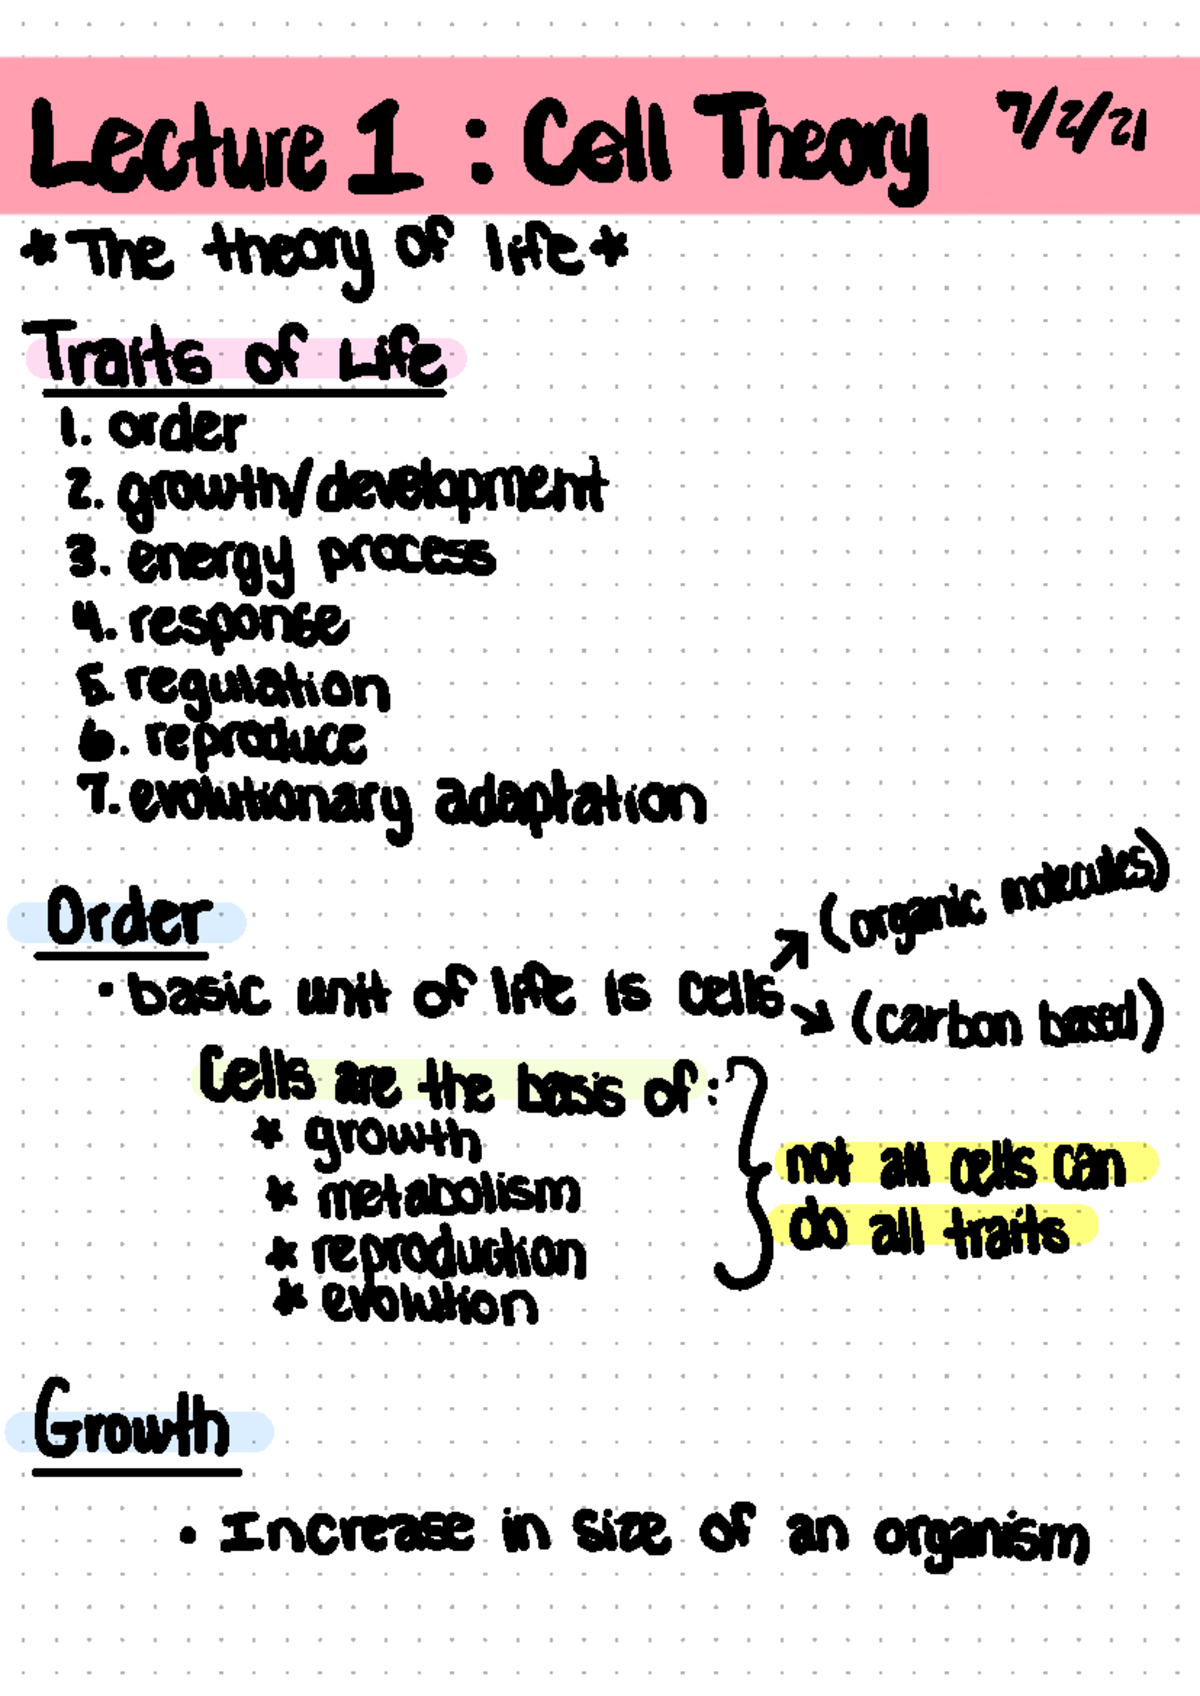 Lecture 1 : Cell Theory 7/2/21
*The theory of life*
Traits of Life
1. order
2. growth/development
3. energy process
4. response
5. regulation
6. reproduce
7. evolutionary adaptation
Order
(organic molecules)
• basic unit of life is cells
(carbon based)
Cells are the basis of:
* growth
* metabolism
* reproduction
* evolution
not all cells can
do all traits
Growth
• Increase in size of an organism